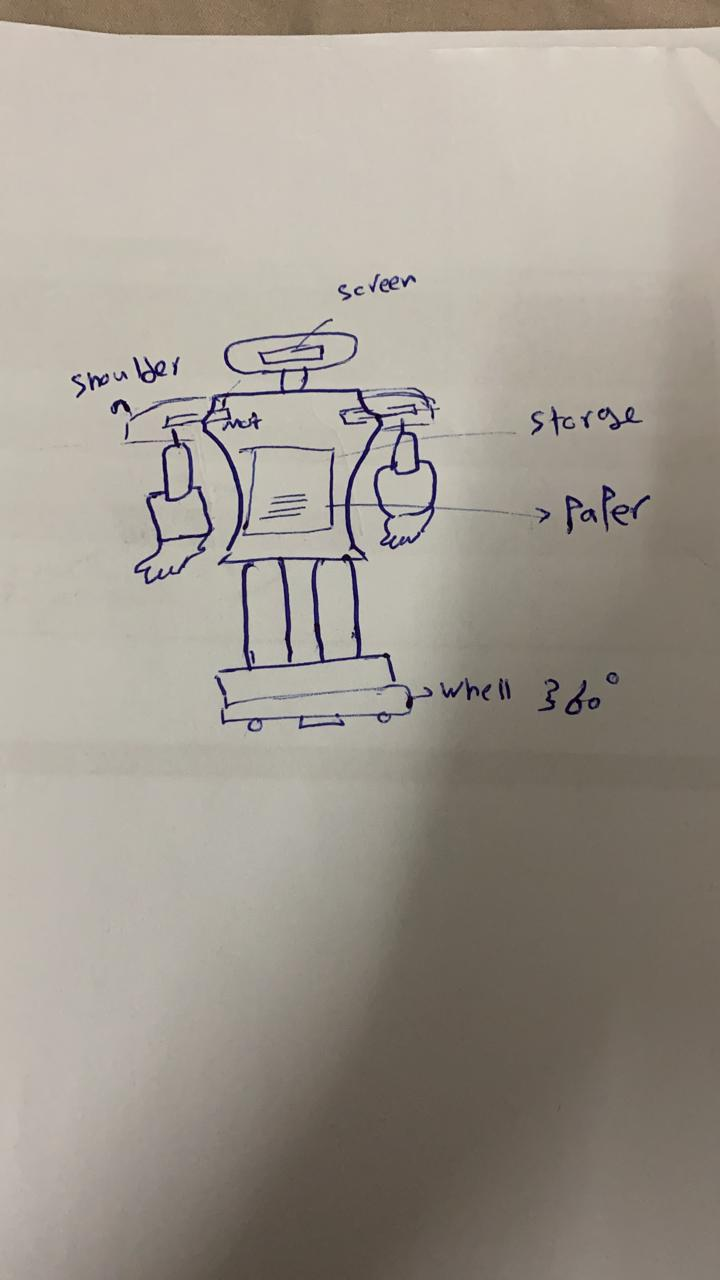 screen
shoulder
Mot
Storge
Paper
Whell 360°